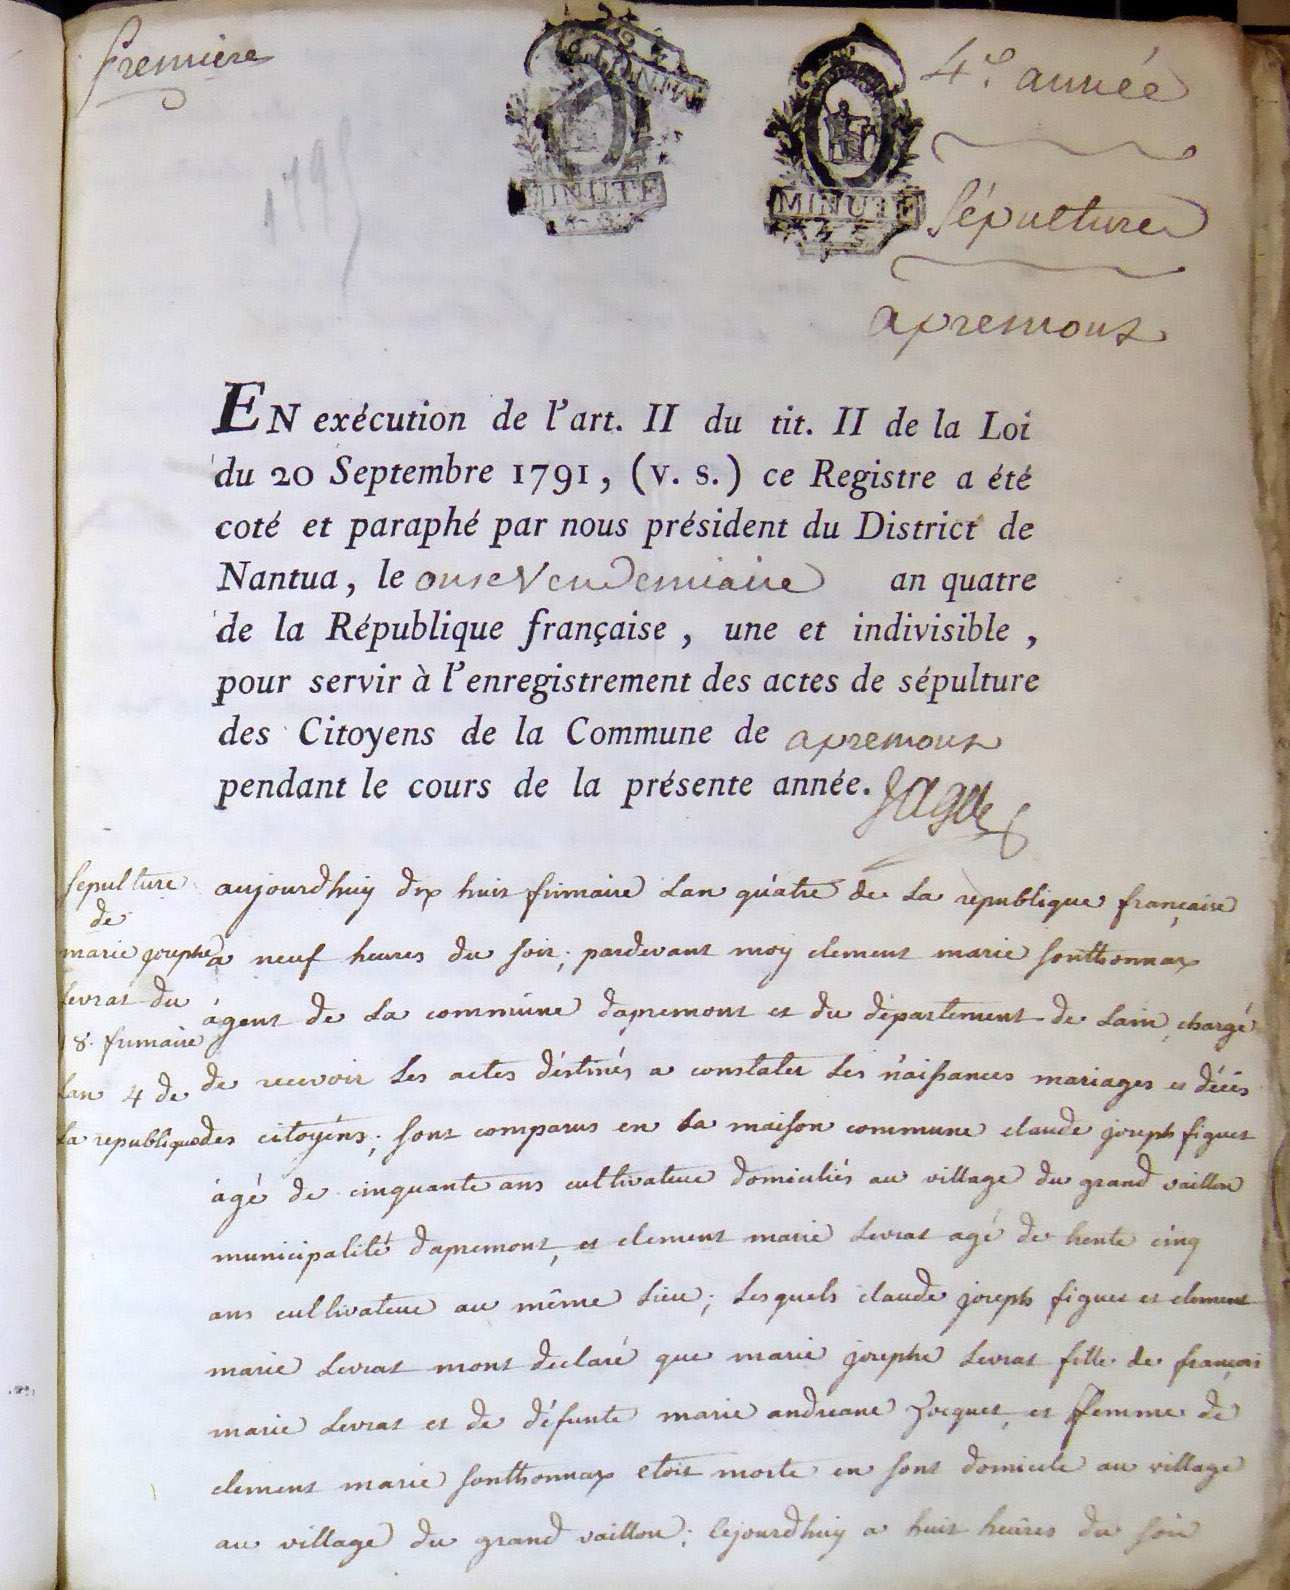 premiere
4.e année
MINUTE
MINUTE
1795
sépulture
apremont
EN exécution de l'art. II du tit. II de la Loi
du 20 Septembre 1791, (v. s.) ce Registre a été
coté et paraphé par nous président du District de
Nantua, le onse Vendemiaire an quatre
de la République française, une et indivisible,
pour servir à l'enregistrement des actes de sépulture
des Citoyens de la Commune de apremont
pendant le cours de la présente année.
sepulture
de
marie josephe
Levrat du
18. frimaire
Lan 4 de
La republique
aujourdhuy dix huit frimaire Lan quatre de La republique française
a neuf heures du soir; pardevant moy clement marie sonthonnax
agent de La commune dapremont et du département de Lain, chargé
de recevoir Les actes déstinés a constater Les naissances mariages et décés
des citoyéns; sont comparus en La maison commune claude joseph figuet
agé de cinquante ans cultivateur domiciliés au village du grand vaillon
municipalité dapremont, et clement marie Levrat agé de trente cinq
ans cultivateur au même Lieu; Lesquels claude joseph figuet et clement
marie Levrat mont declaré que marie josephe Levrat fille de françois
marie Levrat et de défunte marie andreane Jocquet, et femme de
clement marie sonthonnax etoit morte en sont domicile au village
au village du grand vaillon; cejourdhuy a huit heures du soir